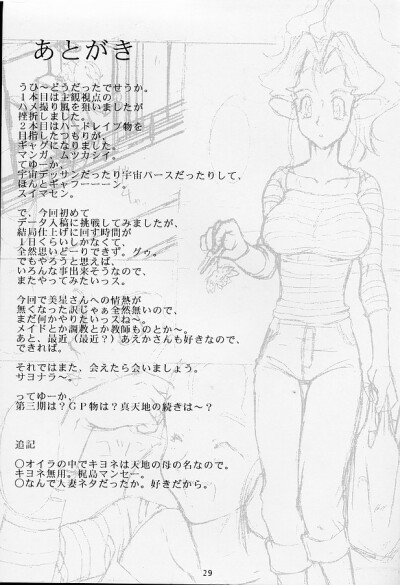 あとがき
うひ～どうだったでせうか。
１本目は主観視点の
ハメ撮り風を狙いましたが
挫折しました。
２本目はハードレイプ物を
目指したつもりが、
ギャグになりました。
マンガ。ムツカシイ。
てゆーか。
宇宙デッサンだったり宇宙パースだったりして、
ほんとギャフーーーン。
スイマセン。
で、今回初めて
データ入稿に挑戦してみましたが、
結局仕上げに回す時間が
１日くらいしかなくて、
全然思いどーりできず。グゥ。
でもやろうと思えば、
いろんな事出来そうなので、
またやってみたいっス。
今回で美星さんへの情熱が
無くなった訳じゃぁ全然無いので、
まだ何かやりたいっスね～。
メイドとか調教とか教師ものとか～。
あと、最近（最近？）あえかさんも好きなので、
できれば。
それではまた、会えたら会いましょう。
サヨナラ～。
ってゆーか、
第三期は？ＧＰ物は？真天地の続きは～？
追記
○オイラの中でキヨネは天地の母の名なので。
キヨネ無用。梶島マンセー。
○なんで人妻ネタだったか。好きだから。
29